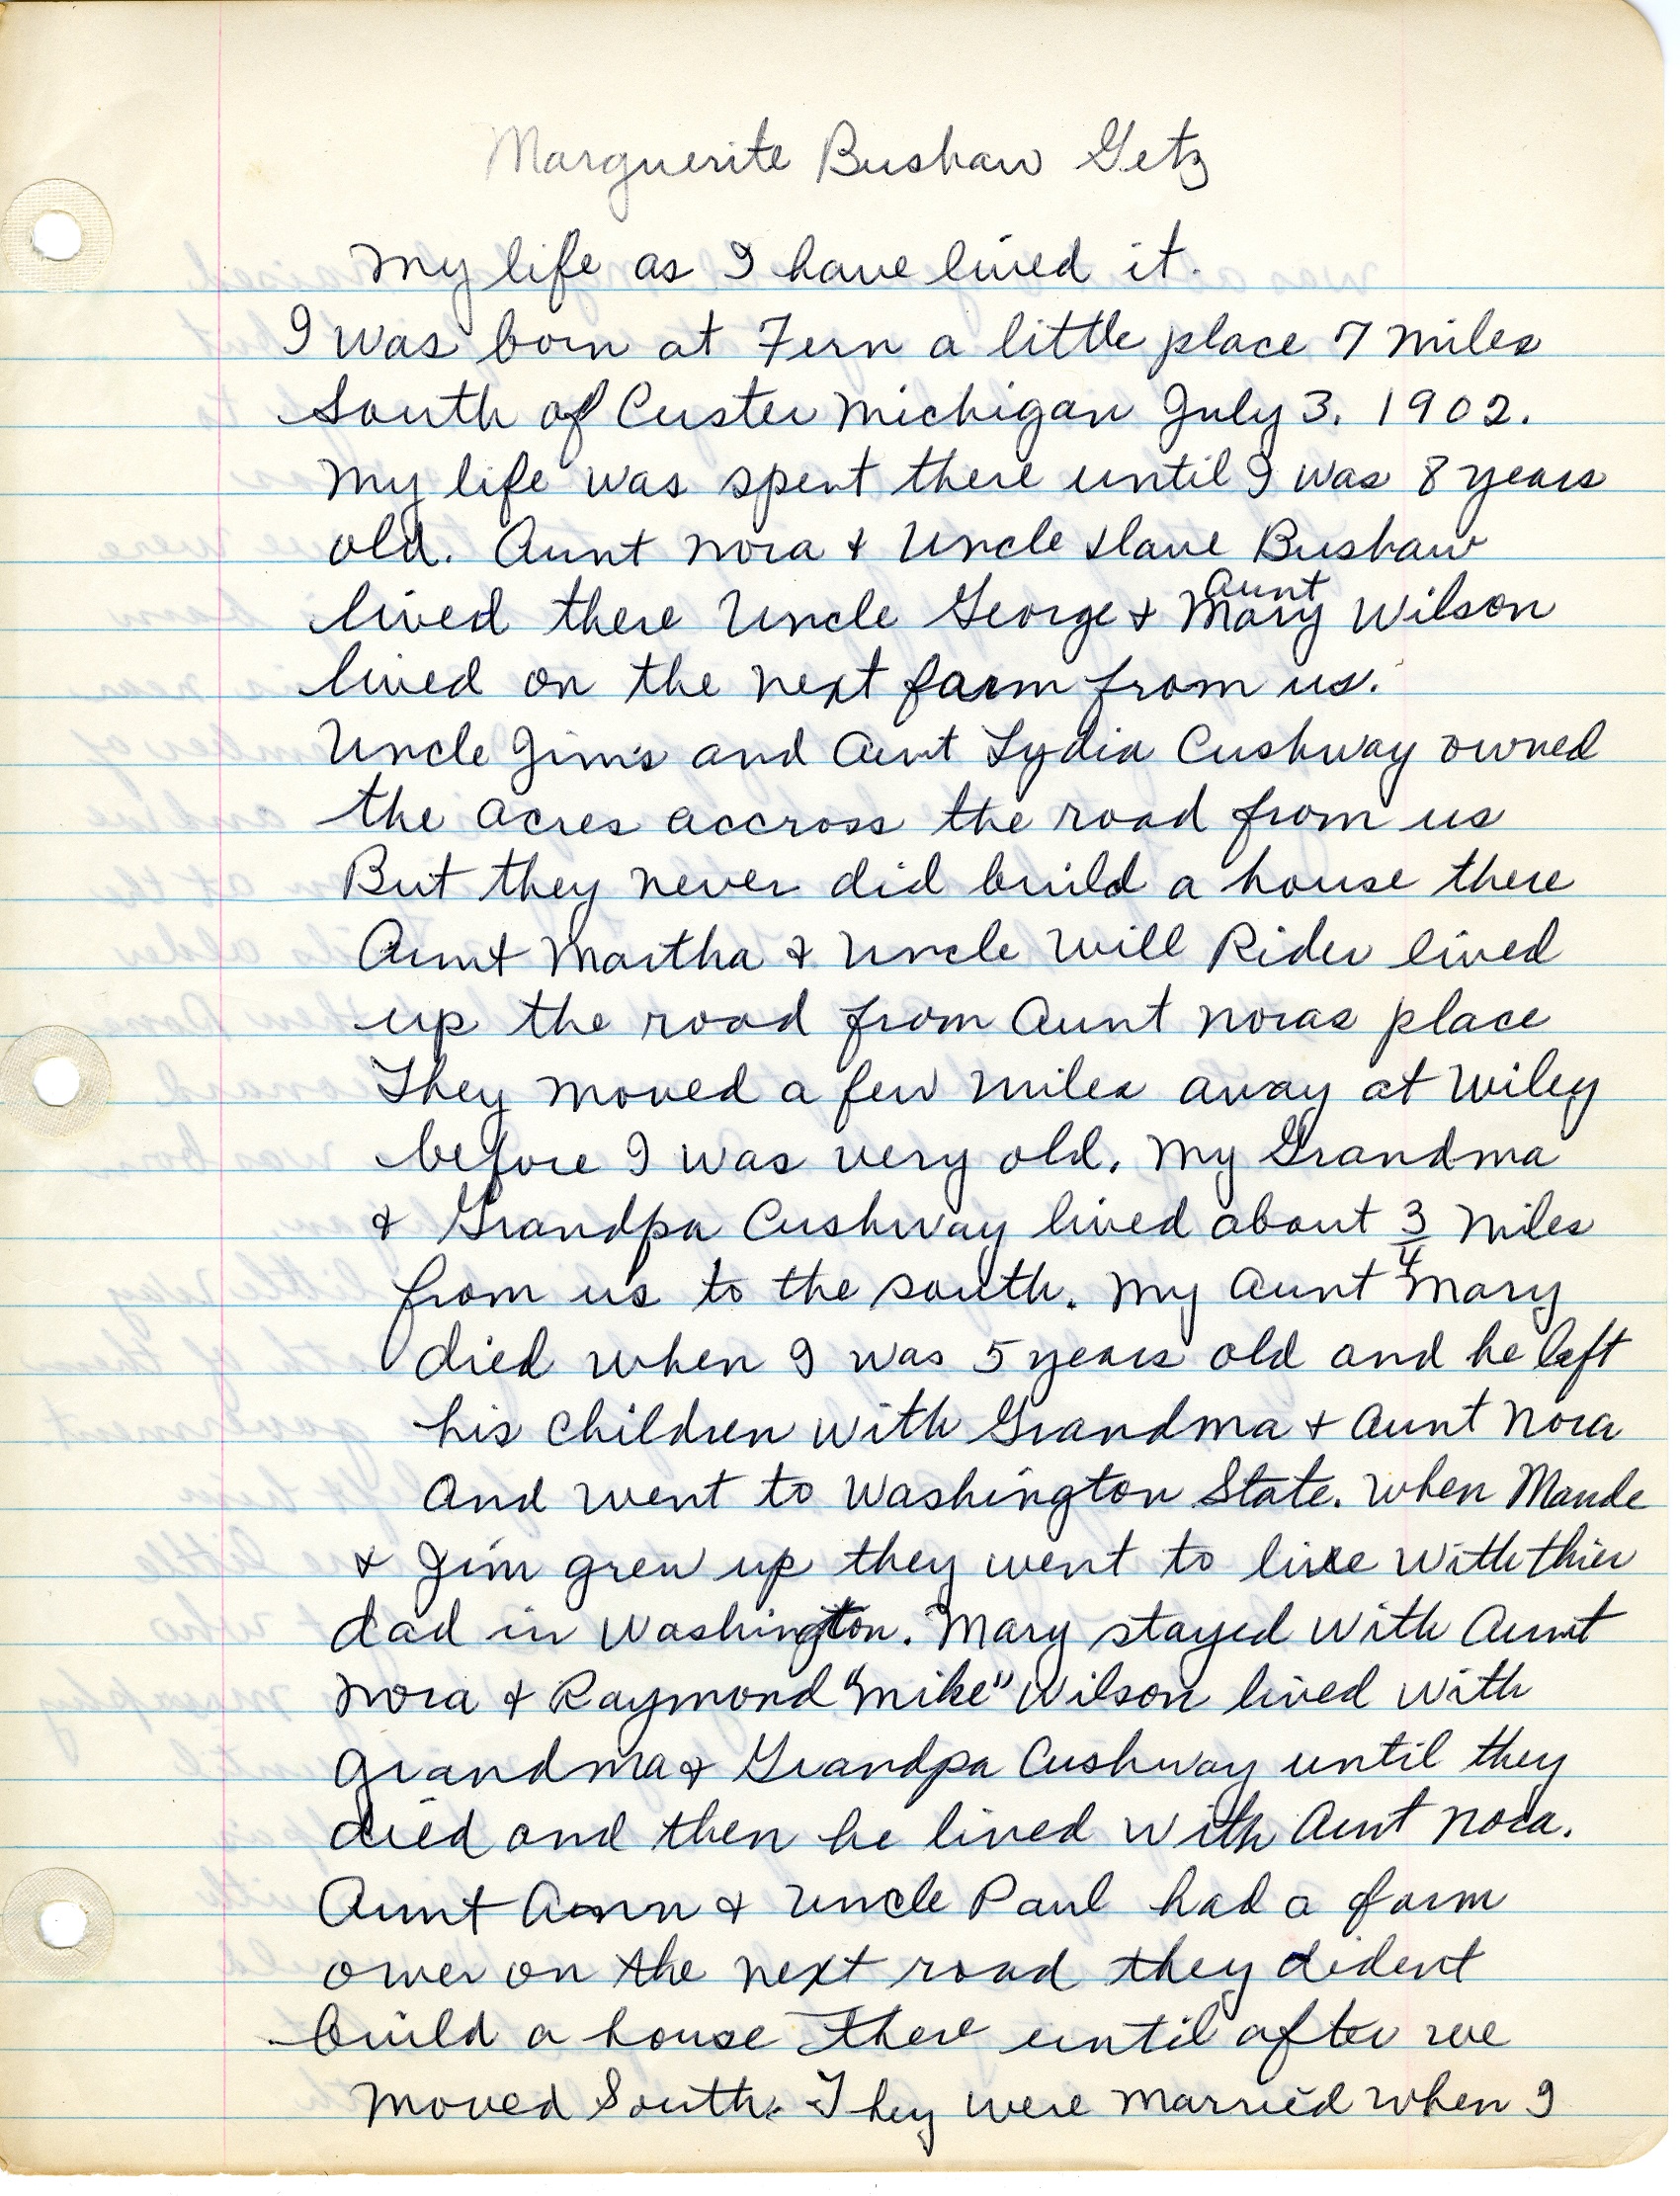 Marguerite Bushaw Getz
My life as I have lived it.
I was born at Fern a little place 7 miles
South of Custer Michigan July 3. 1902.
My life was spent there until I was 8 years
old. Aunt Nora & Uncle Bushaw
lived there Uncle George & Aunt Mary Wilson
lived on the next farm from us.
Uncle Jim's and Aunt Lydia Cushway owned
the acres accross the road from us
But they never did build a house there
Aunt Martha & Uncle Will Rider lived
up the road from Aunt Noras place
They moved a few miles away at Wiley
before I was very old. My Grandma
& Grandpa Cushway lived about 3/4 miles
from us to the south. My Aunt Mary
died when I was 5 years old and he left
his children with Grandma & Aunt Nora
And went to Washington State. When Maude
& Jim grew up they went to live with thier
dad in Washington. Mary stayed with Aunt
Nora & Raymond "Mike" Wilson lived with
Grandma & Grandpa Cushway until they
died and then he lived with Aunt Nora.
Aunt Ann & Uncle Paul had a farm
over on the next road they dident
build a house there until after we
moved South. They were married when I